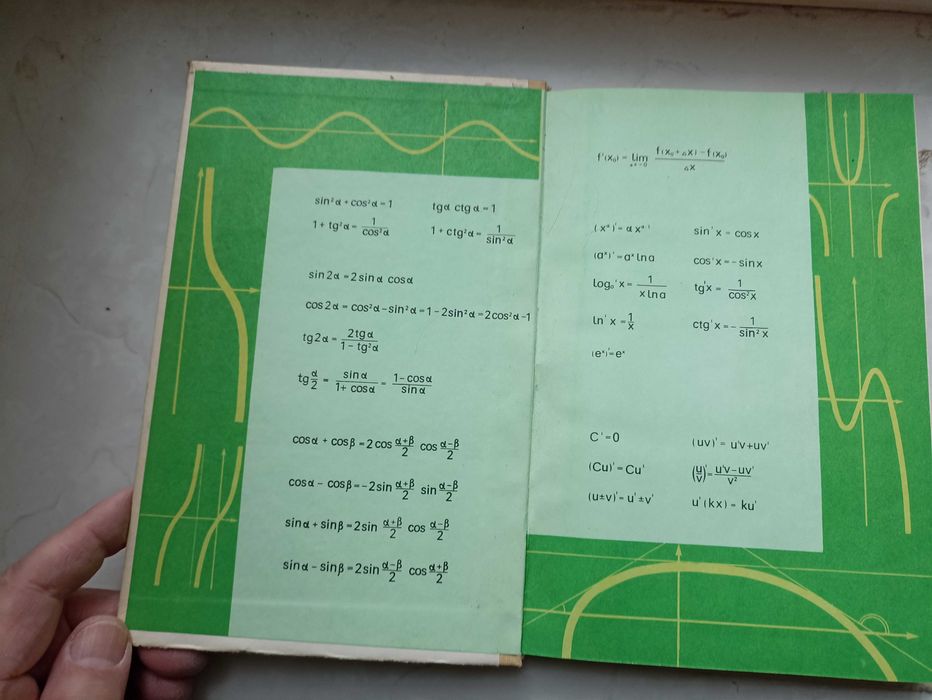 sin²α + cos²α = 1    tgα ctgα = 1
1 + tg²α = 1/cos²α    1 + ctg²α = 1/sin²α
sin 2α = 2 sin α cos α
cos 2α = cos²α − sin²α = 1 − 2sin²α = 2cos²α − 1
tg 2α = 2tgα/(1 − tg²α)
tg α/2 = sin α/(1 + cos α) = (1 − cos α)/sin α
cos α + cos β = 2 cos (α+β)/2 cos (α−β)/2
cos α − cos β = −2 sin (α+β)/2 sin (α−β)/2
sin α + sin β = 2 sin (α+β)/2 cos (α−β)/2
sin α − sin β = 2 sin (α−β)/2 cos (α+β)/2
f'(x₀) = lim Δx→0 (f(x₀ + Δx) − f(x₀))/Δx
(xᵅ)' = α xᵅ⁻¹    sin' x = cos x
(aˣ)' = aˣ ln a    cos' x = − sin x
logₐ' x = 1/(x ln a)    tg' x = 1/cos² x
ln' x = 1/x    ctg' x = − 1/sin² x
(eˣ)' = eˣ
C' = 0    (uv)' = u'v + uv'
(Cu)' = Cu'    (u/v)' = (u'v − uv')/v²
(u ± v)' = u' ± v'    u'(kx) = ku'